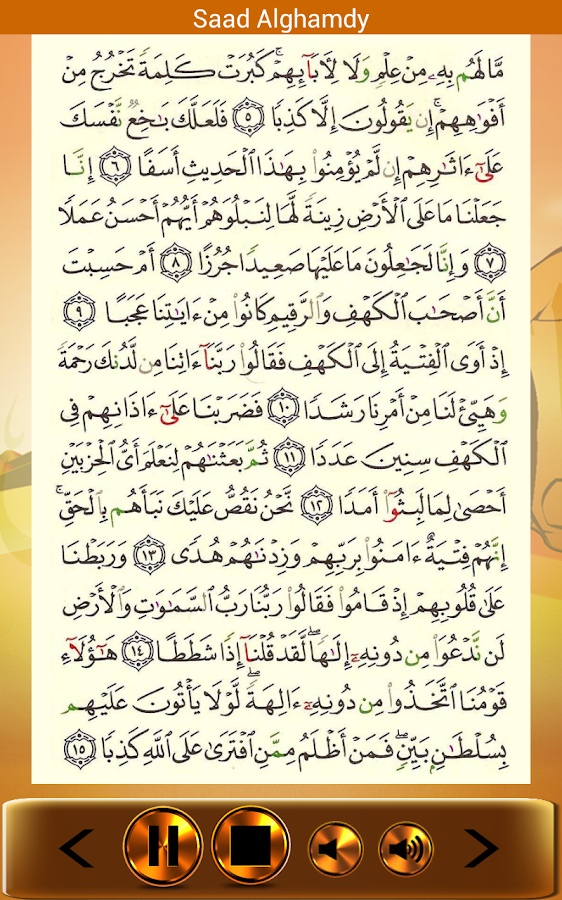 Saad Alghamdy
مَّا لَهُم بِهِۦ مِنْ عِلْمٍ وَلَا لِأَبَآئِهِمْ ۚ كَبُرَتْ كَلِمَةً تَخْرُجُ مِنْ
أَفْوَٰهِهِمْ ۚ إِن يَقُولُونَ إِلَّا كَذِبًا ٥ فَلَعَلَّكَ بَٰخِعٌ نَّفْسَكَ
عَلَىٰٓ ءَاثَٰرِهِمْ إِن لَّمْ يُؤْمِنُوا۟ بِهَٰذَا ٱلْحَدِيثِ أَسَفًا ٦ إِنَّا
جَعَلْنَا مَا عَلَى ٱلْأَرْضِ زِينَةً لَّهَا لِنَبْلُوَهُمْ أَيُّهُمْ أَحْسَنُ عَمَلًا
٧ وَإِنَّا لَجَٰعِلُونَ مَا عَلَيْهَا صَعِيدًا جُرُزًا ٨ أَمْ حَسِبْتَ
أَنَّ أَصْحَٰبَ ٱلْكَهْفِ وَٱلرَّقِيمِ كَانُوا۟ مِنْ ءَايَٰتِنَا عَجَبًا ٩
إِذْ أَوَى ٱلْفِتْيَةُ إِلَى ٱلْكَهْفِ فَقَالُوا۟ رَبَّنَآ ءَاتِنَا مِن لَّدُنكَ رَحْمَةً
وَهَيِّئْ لَنَا مِنْ أَمْرِنَا رَشَدًا ١٠ فَضَرَبْنَا عَلَىٰٓ ءَاذَانِهِمْ فِى
ٱلْكَهْفِ سِنِينَ عَدَدًا ١١ ثُمَّ بَعَثْنَٰهُمْ لِنَعْلَمَ أَىُّ ٱلْحِزْبَيْنِ
أَحْصَىٰ لِمَا لَبِثُوٓا۟ أَمَدًا ١٢ نَّحْنُ نَقُصُّ عَلَيْكَ نَبَأَهُم بِٱلْحَقِّ ۚ
إِنَّهُمْ فِتْيَةٌ ءَامَنُوا۟ بِرَبِّهِمْ وَزِدْنَٰهُمْ هُدًى ١٣ وَرَبَطْنَا
عَلَىٰ قُلُوبِهِمْ إِذْ قَامُوا۟ فَقَالُوا۟ رَبُّنَا رَبُّ ٱلسَّمَٰوَٰتِ وَٱلْأَرْضِ
لَن نَّدْعُوَا۟ مِن دُونِهِۦٓ إِلَٰهًا ۖ لَّقَدْ قُلْنَآ إِذًا شَطَطًا ١٤ هَٰٓؤُلَآءِ
قَوْمُنَا ٱتَّخَذُوا۟ مِن دُونِهِۦٓ ءَالِهَةً ۖ لَّوْلَا يَأْتُونَ عَلَيْهِم
بِسُلْطَٰنٍۭ بَيِّنٍ ۖ فَمَنْ أَظْلَمُ مِمَّنِ ٱفْتَرَىٰ عَلَى ٱللَّهِ كَذِبًا ١٥